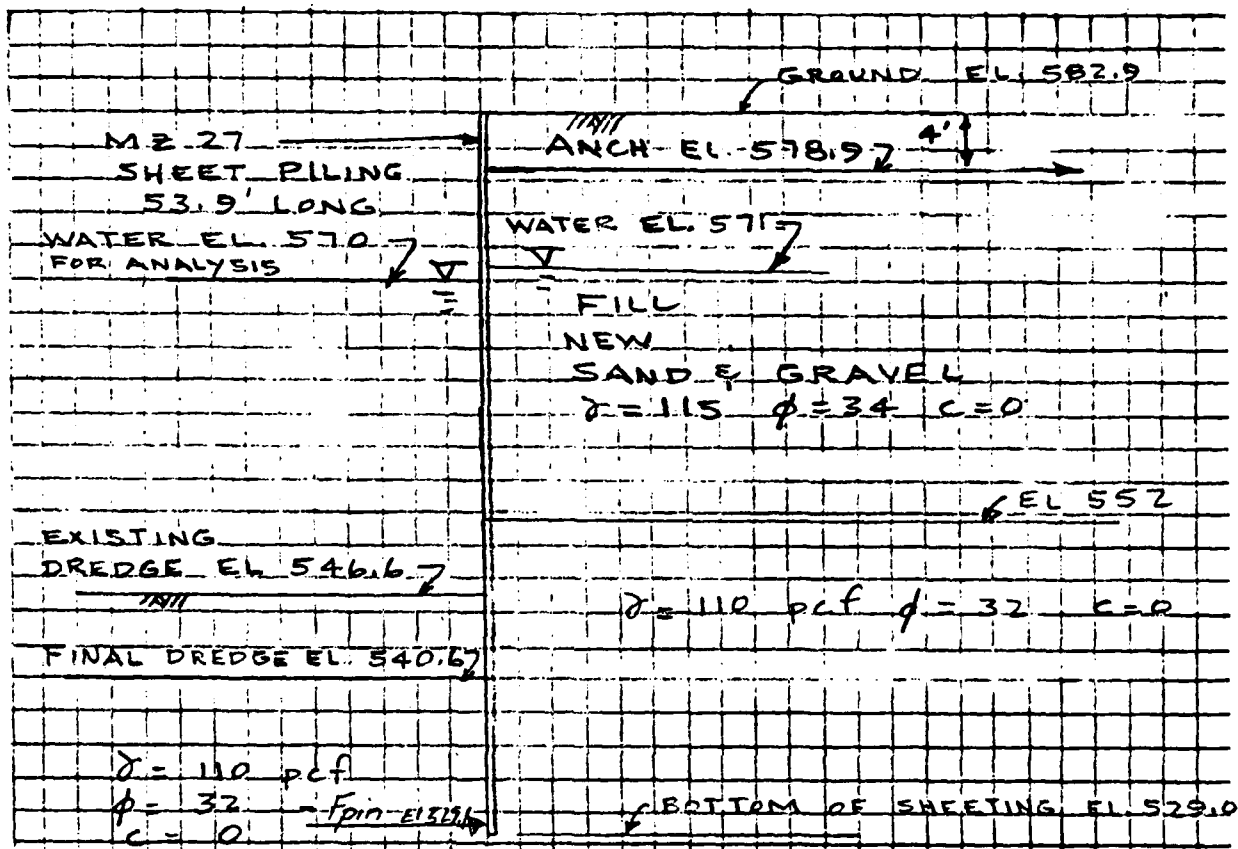 GROUND EL. 582.9
MZ 27
SHEET PILING
53.9' LONG
4'
ANCH EL. 578.9
WATER EL. 570
FOR ANALYSIS
WATER EL. 571
FILL
NEW
SAND & GRAVEL
γ = 115 φ = 34 c = 0
EL 552
EXISTING
DREDGE EL 546.6
γ = 110 pcf φ = 32 c = 0
FINAL DREDGE EL. 540.6
γ = 110 pcf
φ = 32
c = 0
Fpin
BOTTOM OF SHEETING EL 529.0